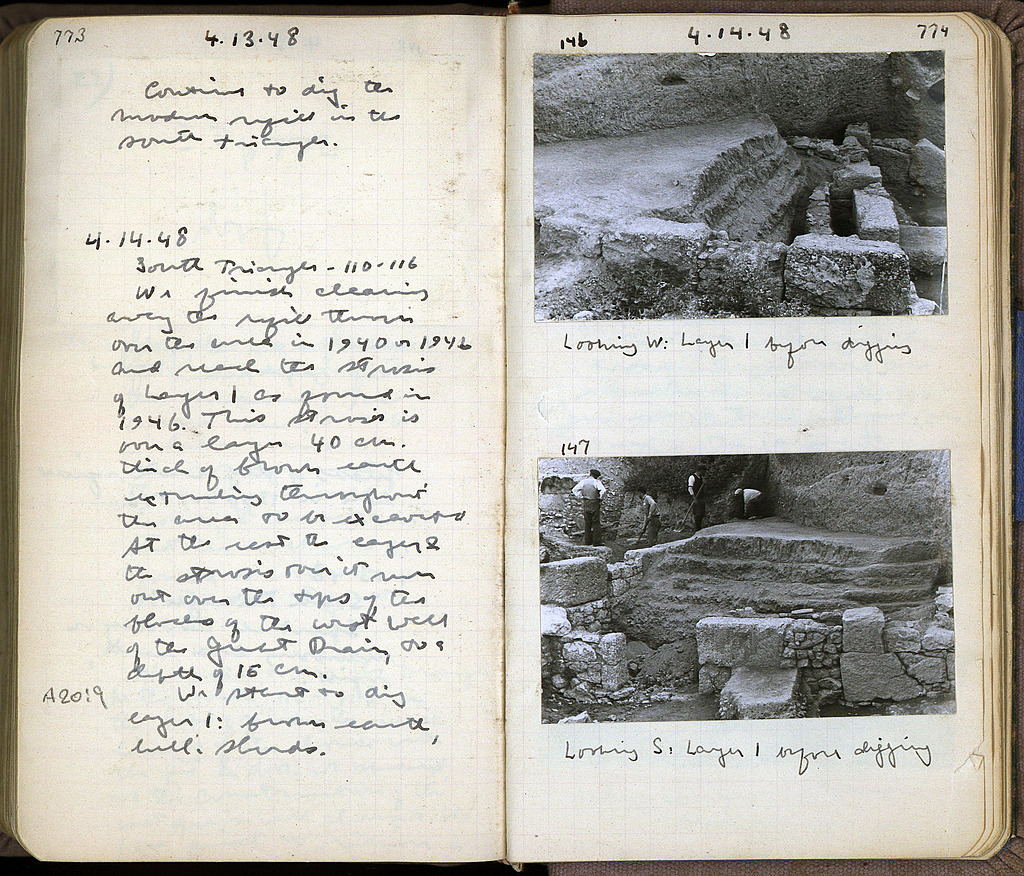 773
4.13.48
Continue to dig the
modern refill in the
south triangle.
4.14.48
South Triangle - 110-116
We finish clearing
away the refill thrown
over the area in 1940 or 1946
and reach the strosis
of Layer 1 as found in
1946. This strosis is
over a layer 40 cm.
thick of brown earth
extending throughout
the area to be excavated
At the east the layer &
the strosis over it run
out over the tops of the
blocks of the west wall
of the Great Drain, to a
depth of 15 cm.
A2019
We start to dig
layer 1: brown earth,
Hell. sherds.
146
4.14.48
774
Looking W: Layer 1 before digging
147
Looking S: Layer 1 before digging